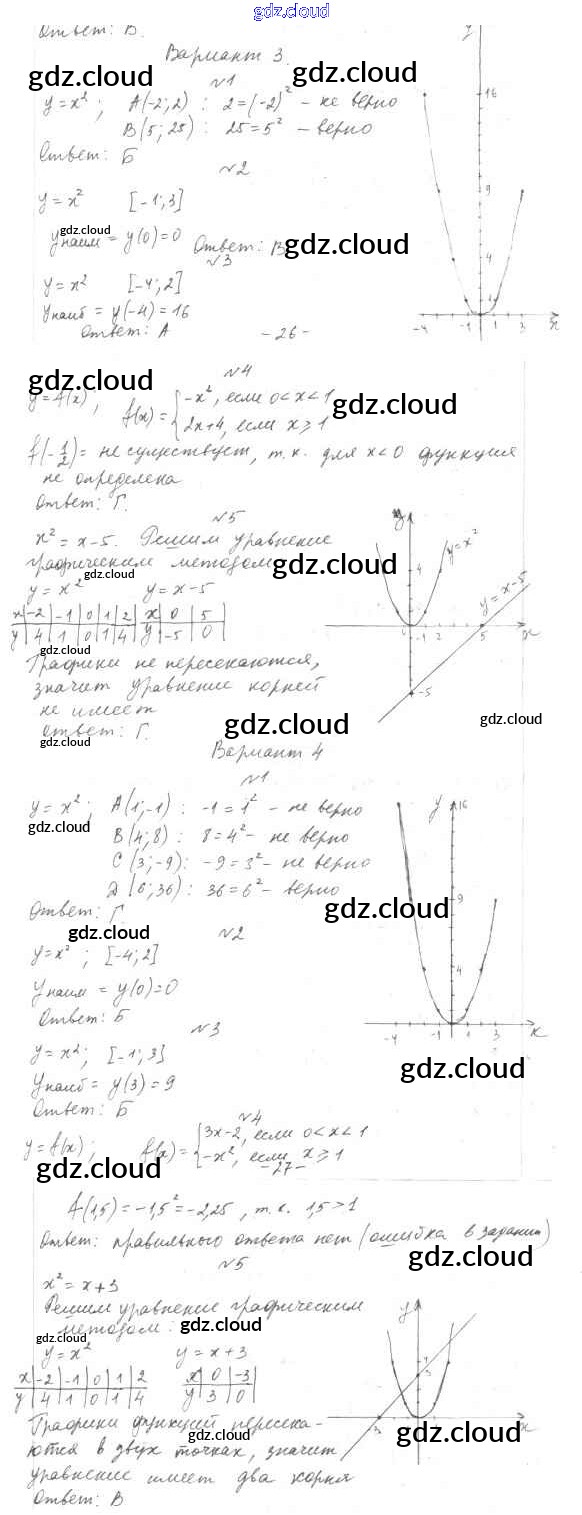 gdz.cloud
Ответ: В.
Вариант 3.
gdz.cloud gdz.cloud
№1
y = x²; A(-2; 2) : 2 = (-2)² - не верно
B(5; 25) : 25 = 5² - верно
Ответ: Б
№2
y = x² [-1; 3]
gdz.cloud
yнаим = y(0) = 0 Ответ: В
gdz.cloud
№3
y = x² [-4; 2]
yнаиб = y(-4) = 16
Ответ: А
-26-
y 16 9 4 1 -4 -1 1 3 x
№4
gdz.cloud
y = f(x); f(x) = { -x², если 0 < x < 1
2x+4, если x ≥ 1
gdz.cloud
f(-1/2) = не существует, т.к. для x < 0 функция
не определена
Ответ: Г.
№5
x² = x-5. Решим уравнение
графическим методом
gdz.cloud
y = x² y = x-5
x -2 -1 0 1 2 x 0 5
y 4 1 0 1 4 y -5 0
gdz.cloud
Графики не пересекаются,
значит уравнение корней
не имеет
Ответ: Г.
gdz.cloud
y y = x² 4 y = x-5 0 1 2 5 x -5
gdz.cloud gdz.cloud
Вариант 4
№1
y = x²; A(1; -1) : -1 = 1² - не верно
gdz.cloud
B(4; 8) : 8 = 4² - не верно
C(3; -9) : -9 = 3² - не верно
D(6; 36) : 36 = 6² - верно
Ответ: Г.
gdz.cloud
gdz.cloud
№2
y = x²; [-4; 2]
yнаим = y(0) = 0
Ответ: Б
y 16 9 4 -4 -1 1 3 x
№3
y = x²; [-1; 3]
gdz.cloud
yнаиб = y(3) = 9
Ответ: Б
№4
y = f(x); f(x) = { 3x-2, если 0 < x < 1
-x², если x ≥ 1
-27-
gdz.cloud
f(1,5) = -1,5² = -2,25, т.к. 1,5 > 1
Ответ: правильного ответа нет (ошибка в задании)
gdz.cloud
№5
x² = x+3
Решим уравнение графическим
методом:
gdz.cloud
gdz.cloud
y = x² y = x+3
x -2 -1 0 1 2 x 0 -3
y 4 1 0 1 4 y 3 0
gdz.cloud
Графики функций пересека-
ются в двух точках, значит
уравнение имеет два корня
Ответ: В
gdz.cloud
y 3 3 0 x
gdz.cloud